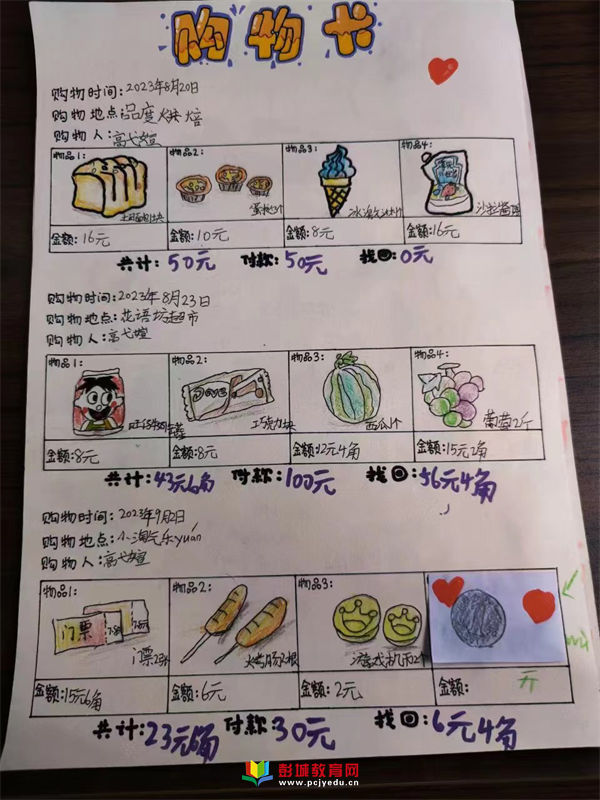 购物卡
购物时间：2023年8月20日
购物地点：品度烘焙
购物人：高弋媗
物品1： 物品2： 物品3： 物品4：
蛋挞3个
金额：16元 金额：10元 金额：8元 金额：16元
共计：50元 付款：50元 找回：0元
购物时间：2023年8月23日
购物地点：花语坊超市
购物人：高弋媗
物品1： 物品2： 物品3： 物品4：
巧克力1块 西瓜1个 葡萄2个
金额：8元 金额：8元 金额：12元4角 金额：15元2角
共计：43元6角 付款：100元 找回：56元4角
购物时间：2023年9月2日
购物地点：小淘气乐yuán
购物人：高弋媗
物品1： 物品2： 物品3：
门票
门票2张 火烤肠2根 游戏机币2个
金额：15元6角 金额：6元 金额：2元 金额：
开
共计：23元6角 付款：30元 找回：6元4角
彭城教育网
www.pcjyedu.cn